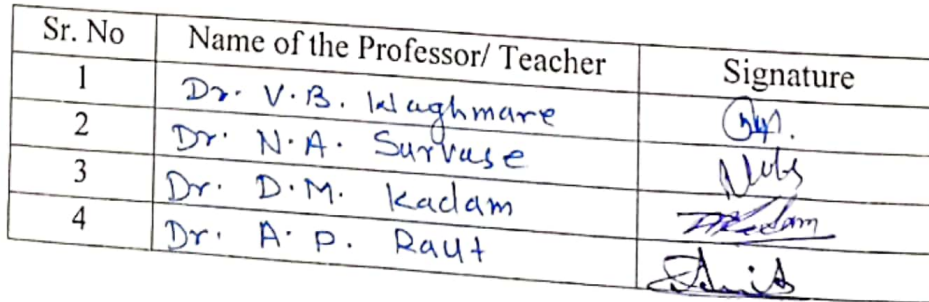 Sr. No Name of the Professor/ Teacher Signature
1 Dr. V.B. Waghmare
2 Dr. N.A. Survase
3 Dr. D.M. Kadam
4 Dr. A.P. Raut